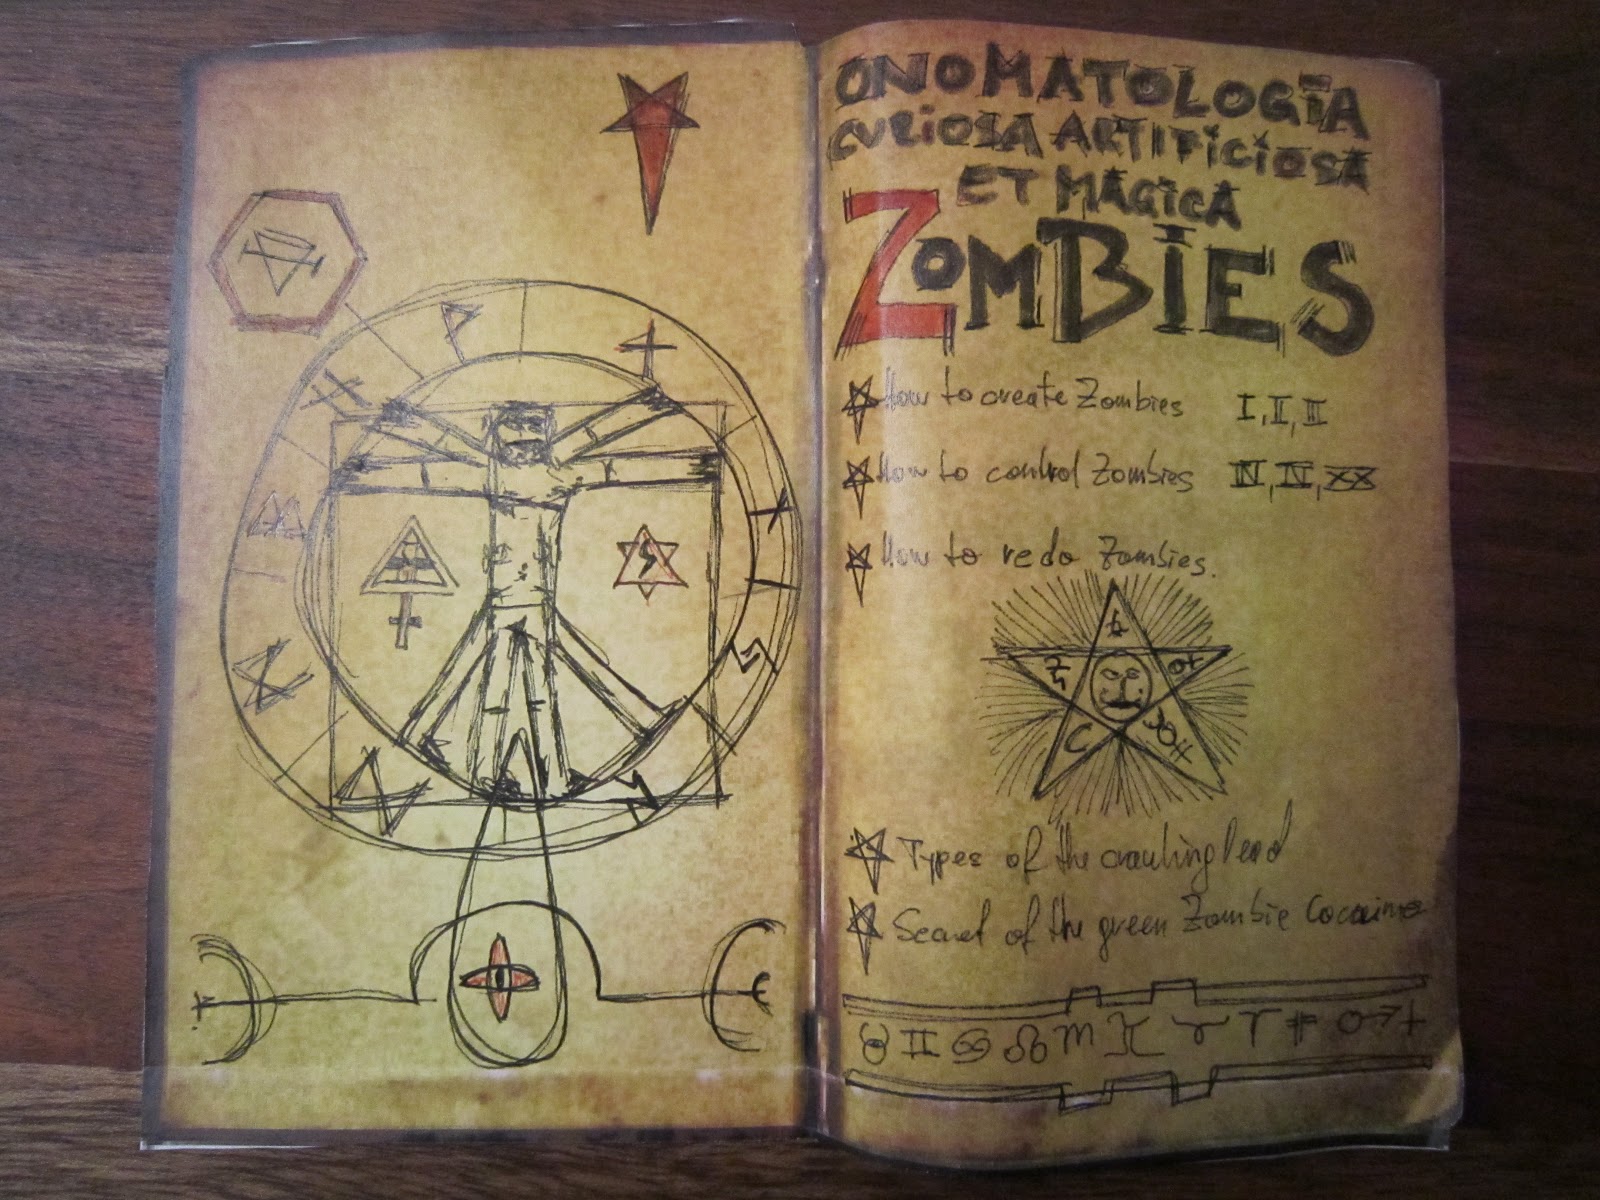 ONOMATOLOGIA
CURIOSA ARTIFICIOSA
ET MAGICA
ZOMBIES
How to create Zombies I, II, III
How to control Zombies IV, IV, XX
How to redo Zombies.
Types of the crawling dead
Secret of the green Zombie Cocaine